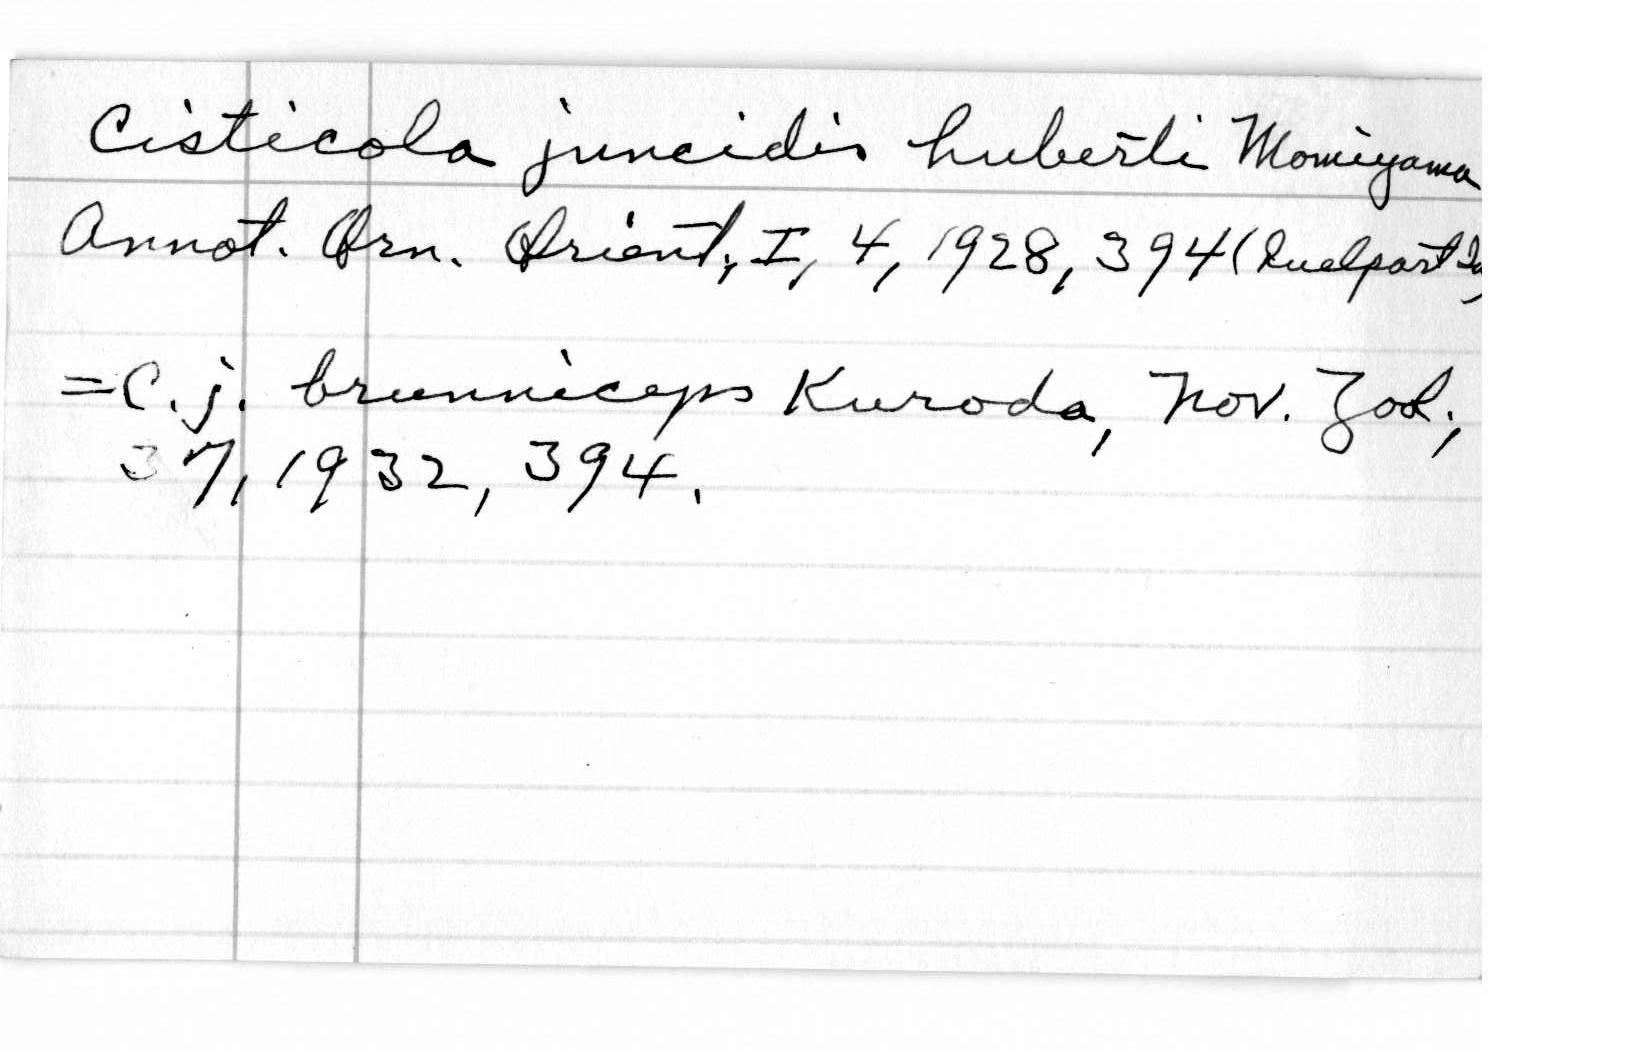 Cisticola juncidis huberti Momiyama
Annot. Orn. Orient., I, 4, 1928, 394 (Quelpart Is,
=C. j. brunniceps Kuroda, Nov. Zool.,
37, 1932, 394.